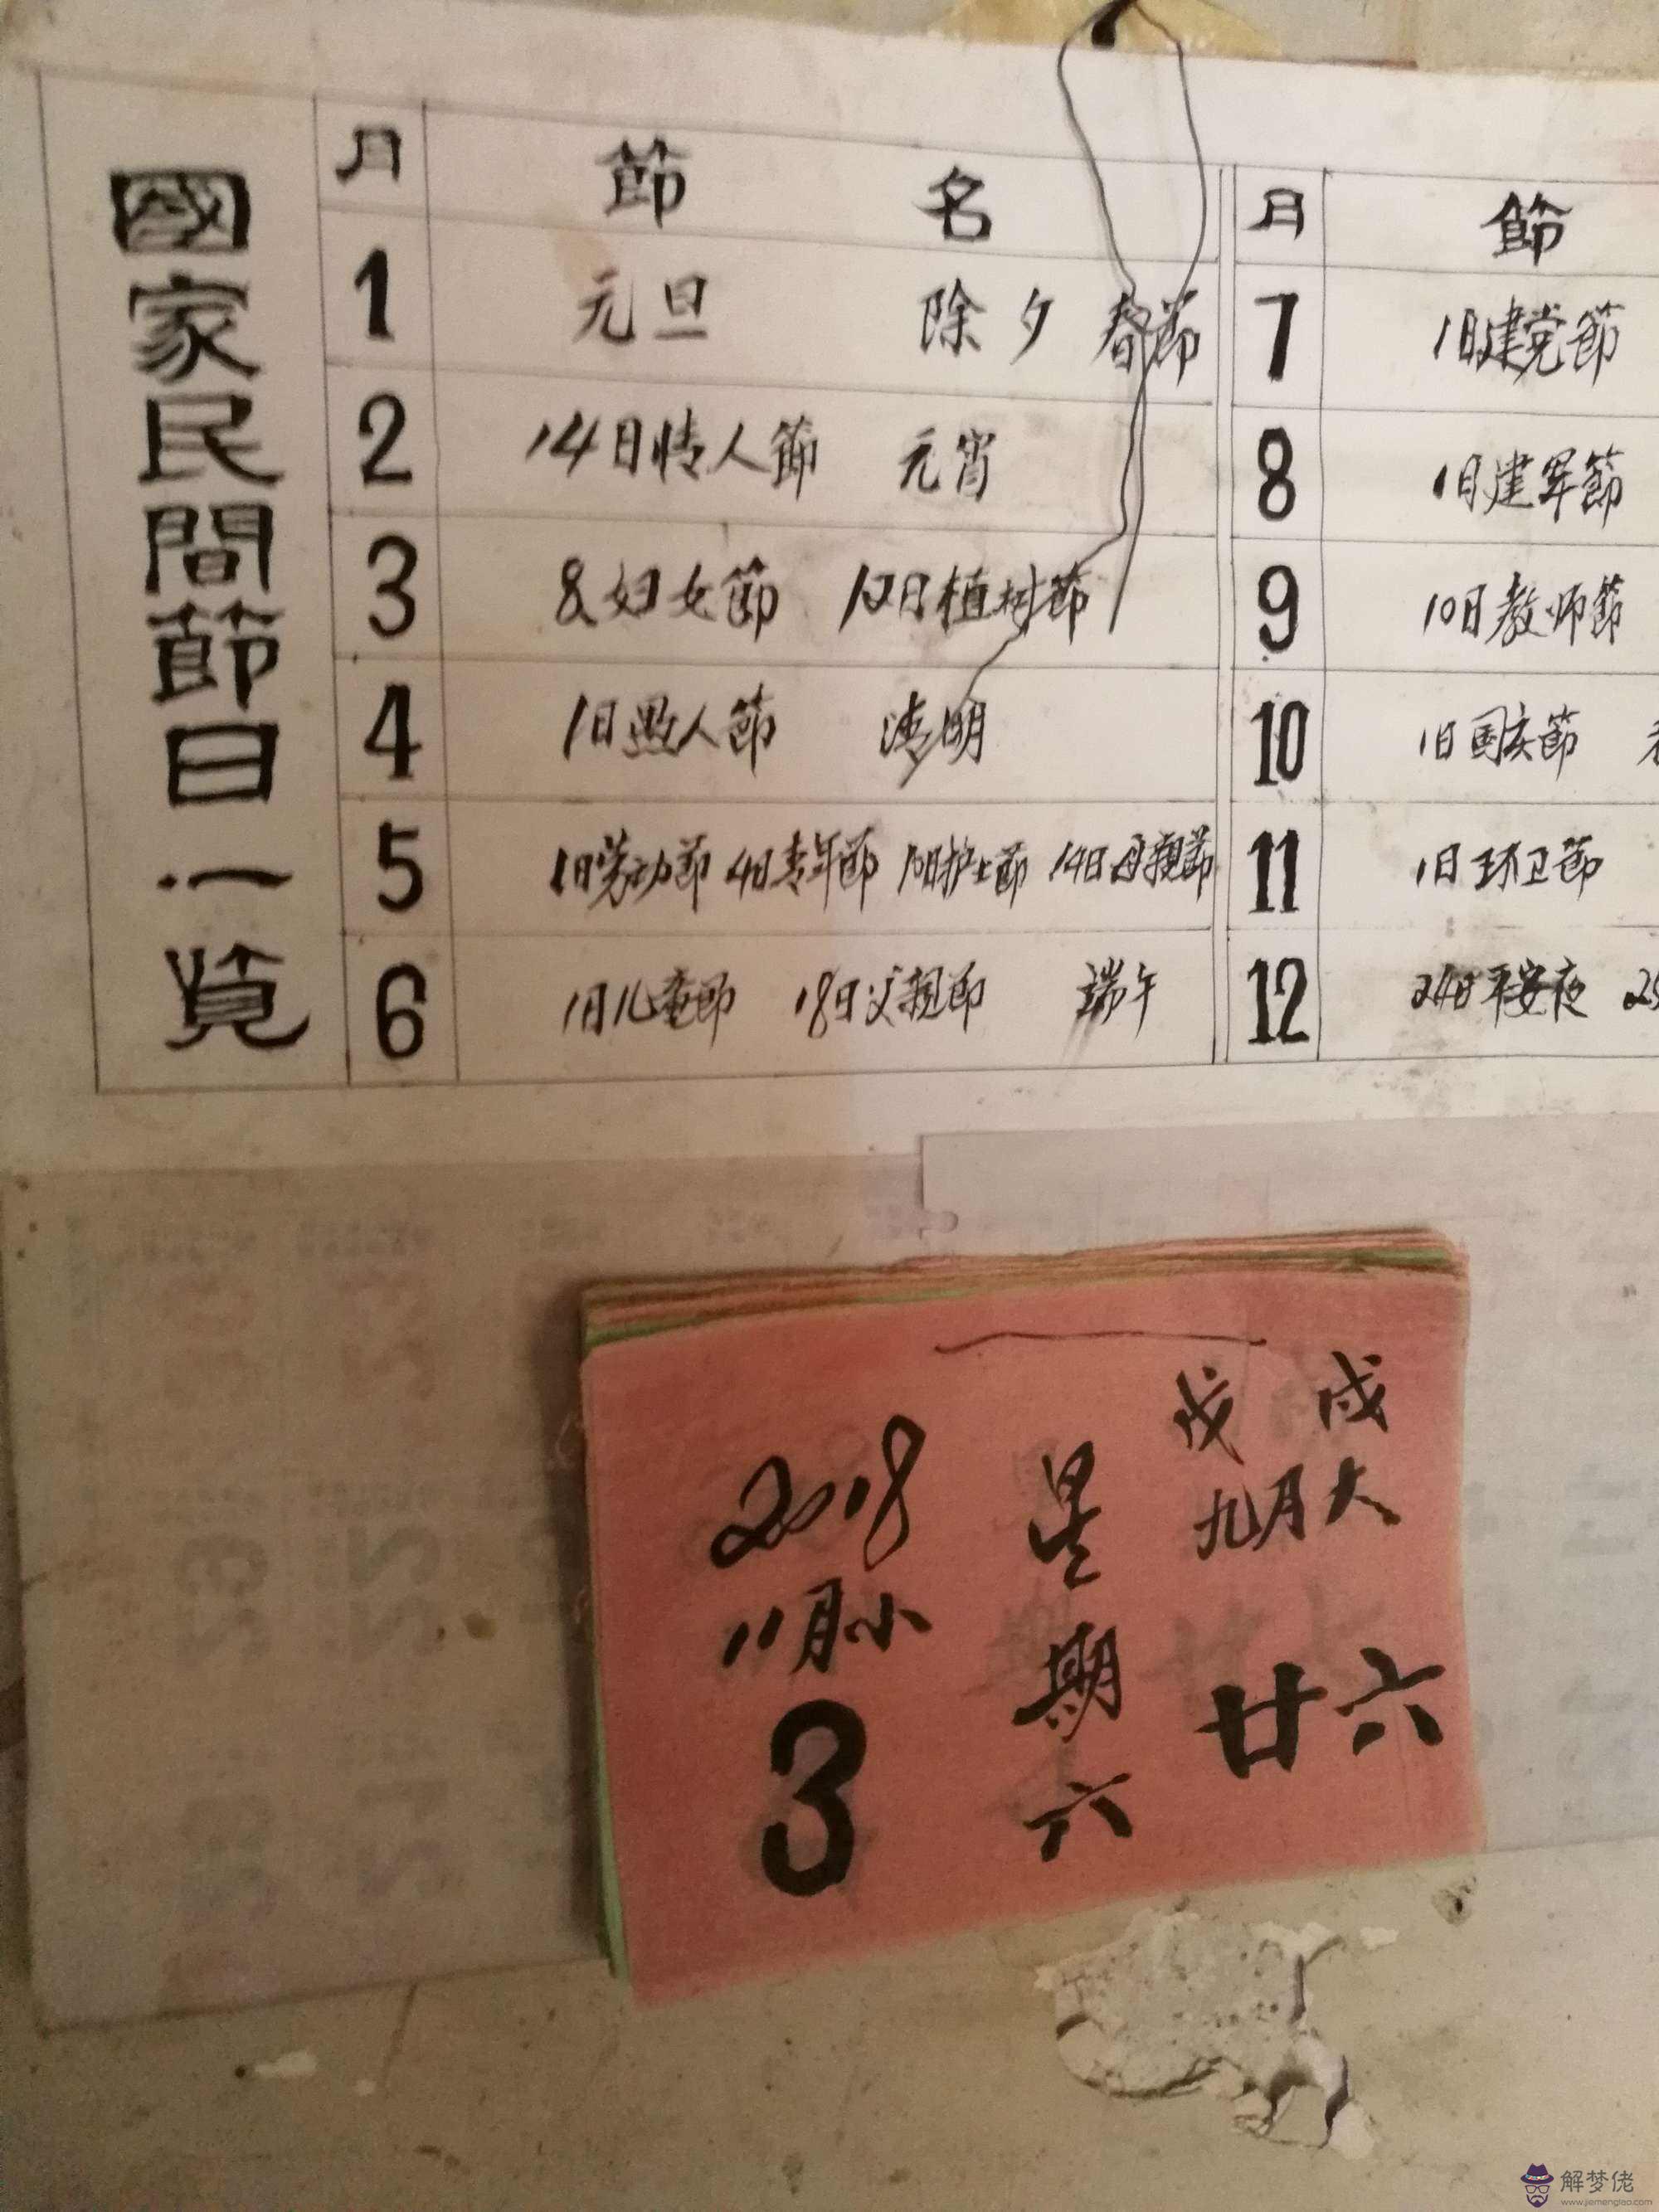 國家民間節日一覽
月 節 名
1 元旦 除夕 春節
2 14日情人節 元宵
3 8妇女節 12日植树節
4 1日愚人節 清明
5 1日劳动節 4日青年節 护士節 14日母親節
6 1日儿童節 18日父親節 端午
月 節
7 1日建党節
8 1日建军節
9 10日教师節
10 1日国庆節
11 1日环卫節
12 24日平安夜 25
2018
11月小
3
星期六
戊戌
九月大
廿六
解梦佬
www.jiemenglao.com